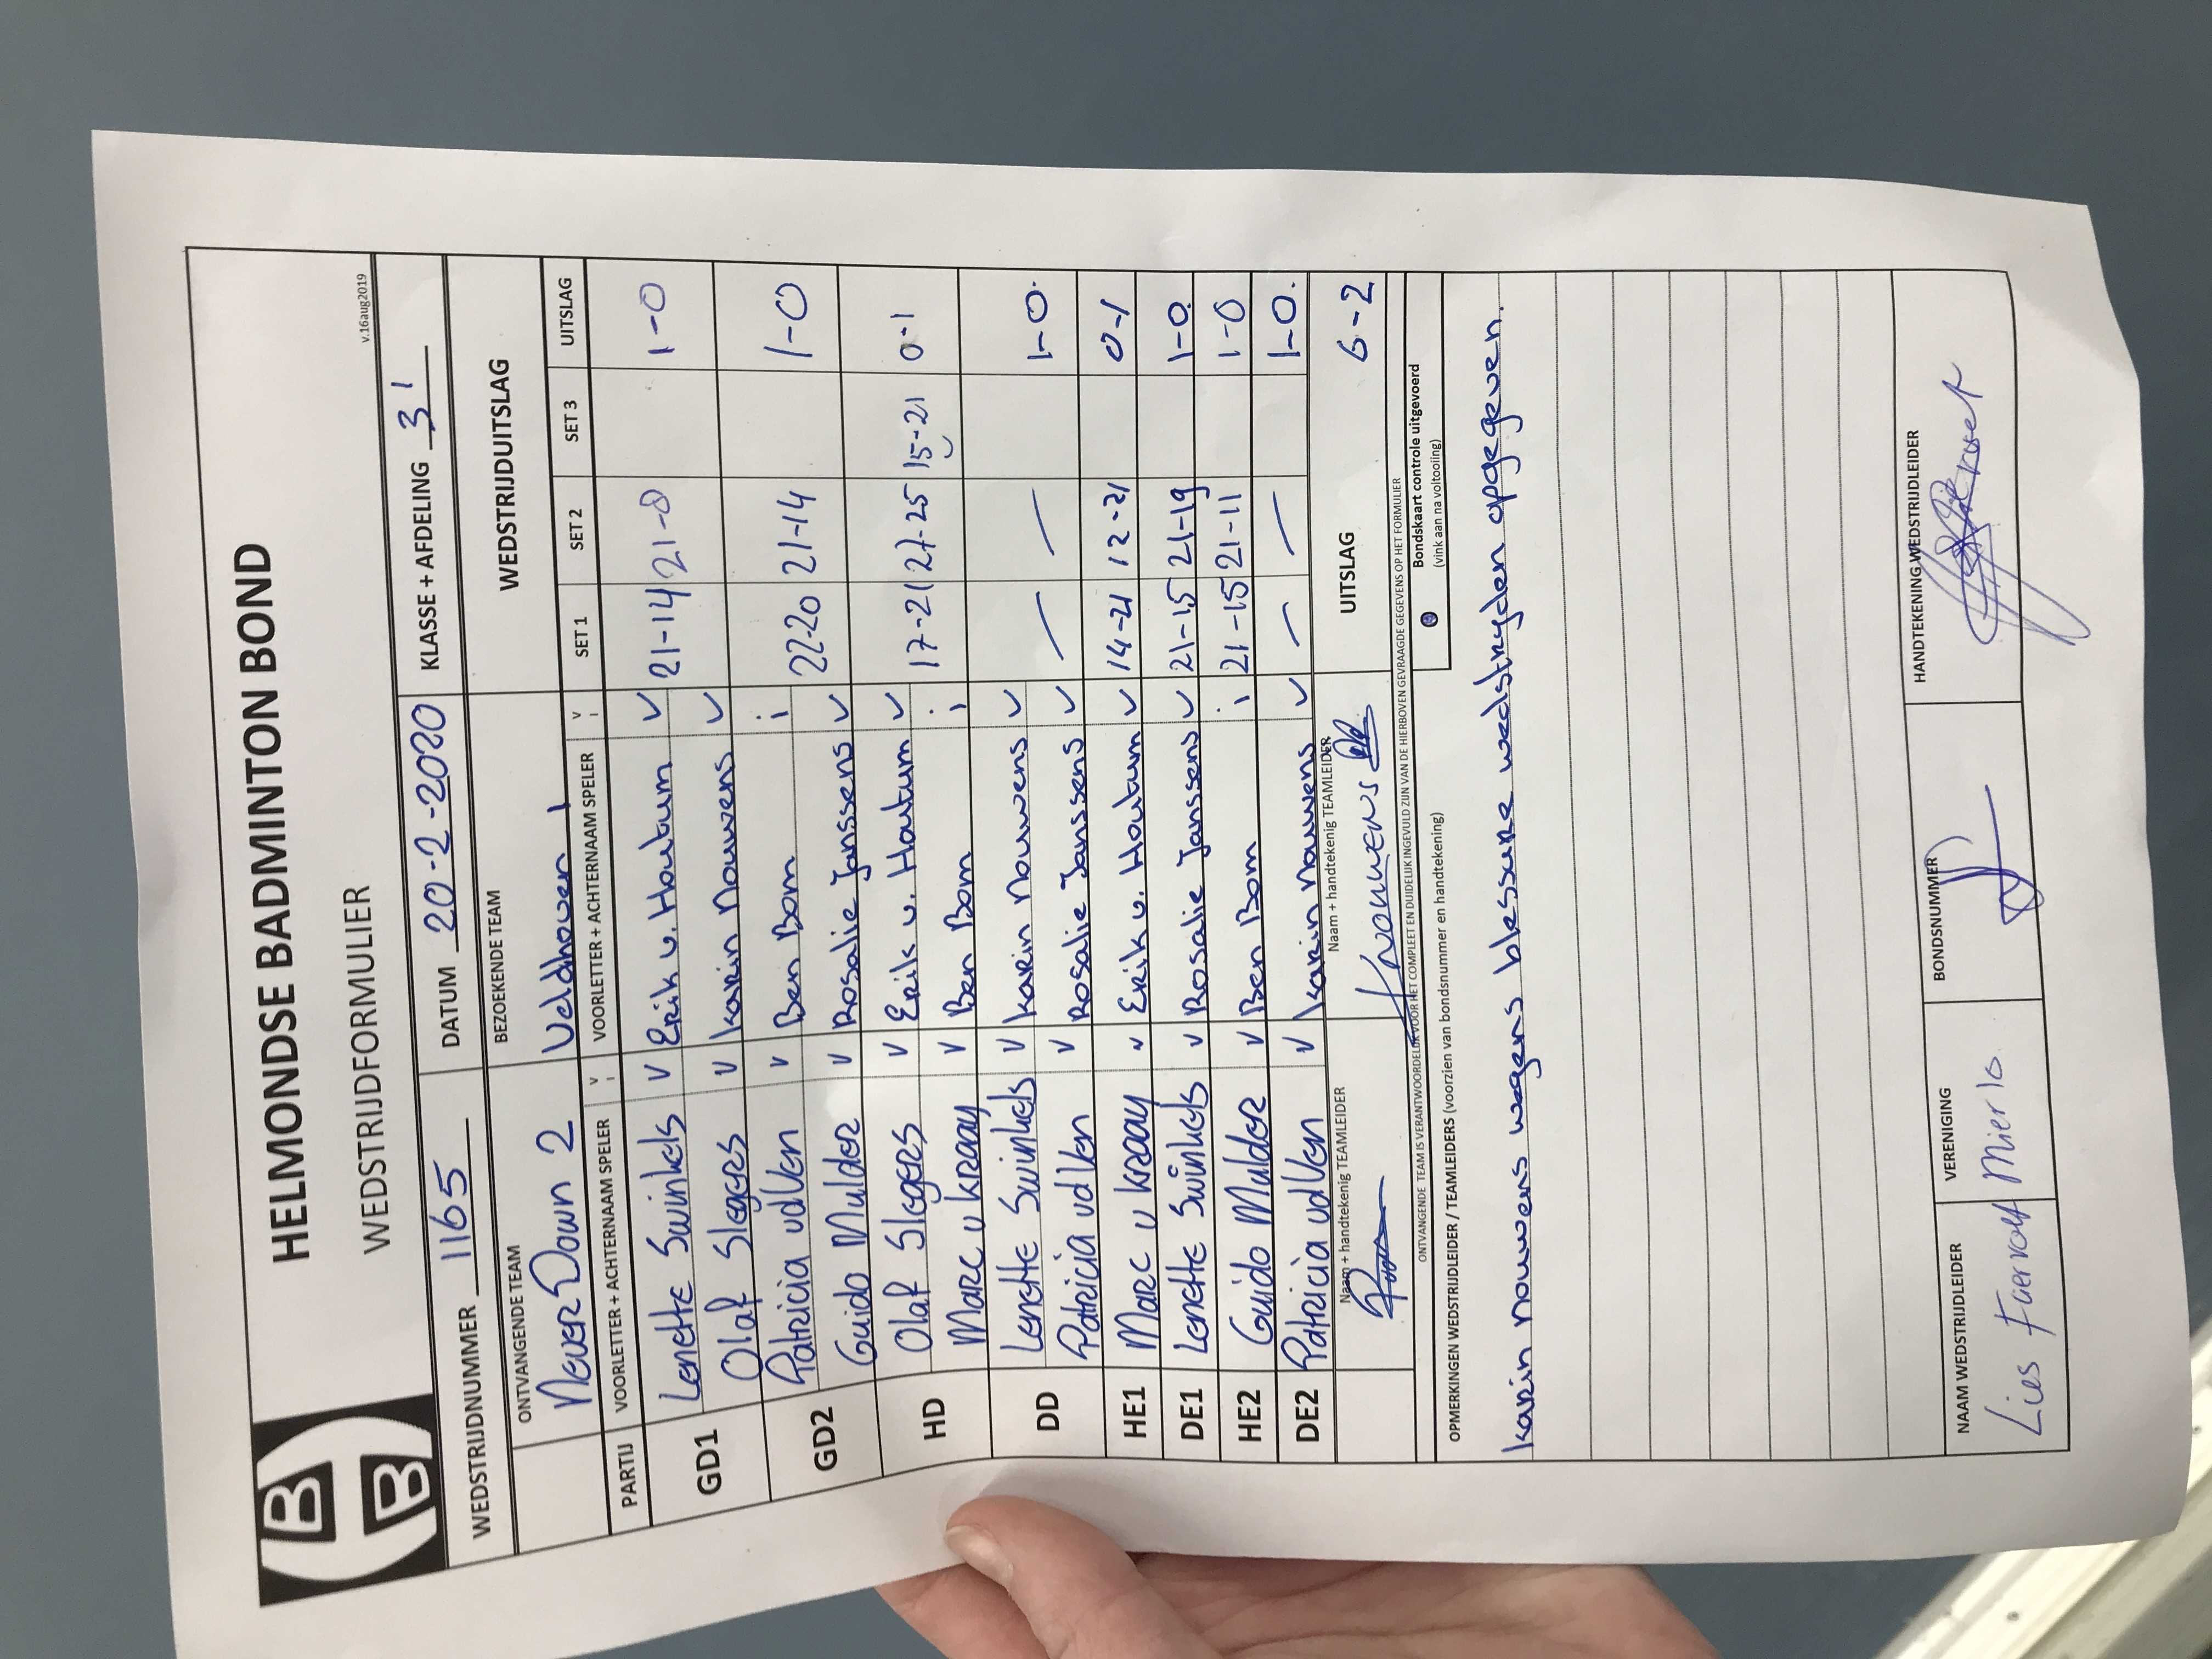 B
B
HELMONDSE BADMINTON BOND
WEDSTRIJDFORMULIER
v.16aug2019
WEDSTRIJDNUMMER 1165 DATUM 20-2-2020 KLASSE + AFDELING 31
ONTVANGENDE TEAM BEZOEKENDE TEAM WEDSTRIJDUITSLAG
NeverDown 2 Veldhoven 1
PARTIJ VOORLETTER + ACHTERNAAM SPELER V I VOORLETTER + ACHTERNAAM SPELER V I SET 1 SET 2 SET 3 UITSLAG
GD1 Lenette Swinkels V Erik v. Houtum V 21-14 21-8 1-0
Olaf Slegers V Karin Nouwens V
GD2 Patricia vd Ven V Ben Bom i 22-20 21-14 1-0
Guido Mulder V Rosalie Janssens V
HD Olaf Slegers V Erik v. Houtum V 17-21 27-25 15-21 0-1
Marc v Kraay V Ben Bom i
DD Lenette Swinkels V Karin Nouwens V — — 1-0.
Patricia vd Ven V Rosalie Janssens V
HE1 Marc v Kraay V Erik v. Houtum V 14-21 12-21 0-1
DE1 Lenette Swinkels V Rosalie Janssens V 21-15 21-19 1-0.
HE2 Guido Mulder V Ben Bom i 21-15 21-11 1-0
DE2 Patricia vd Ven V Karin Nouwens V — — 1-0.
Naam + handtekenig TEAMLEIDER Naam + handtekenig TEAMLEIDER UITSLAG 6-2
Knouwens
ONTVANGENDE TEAM IS VERANTWOORDELIJK VOOR HET COMPLEET EN DUIDELIJK INGEVULD ZIJN VAN DE HIERBOVEN GEVRAAGDE GEGEVENS OP HET FORMULIER
Bondskaart controle uitgevoerd
(vink aan na voltooling)
OPMERKINGEN WEDSTRIJDLEIDER / TEAMLEIDERS (voorzien van bondsnummer en handtekening)
Karin nouwens wegens blessure wedstrijden opgegeven.
NAAM WEDSTRIJDLEIDER VERENIGING BONDSNUMMER HANDTEKENING WEDSTRIJDLEIDER
Lies Mierlo